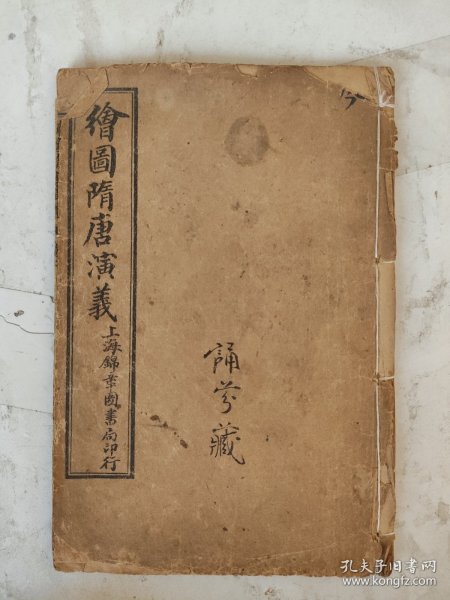 繪圖隋唐演義
上海錦章圖書局印行
誦芬藏
孔夫子旧书网
www.kongfz.com